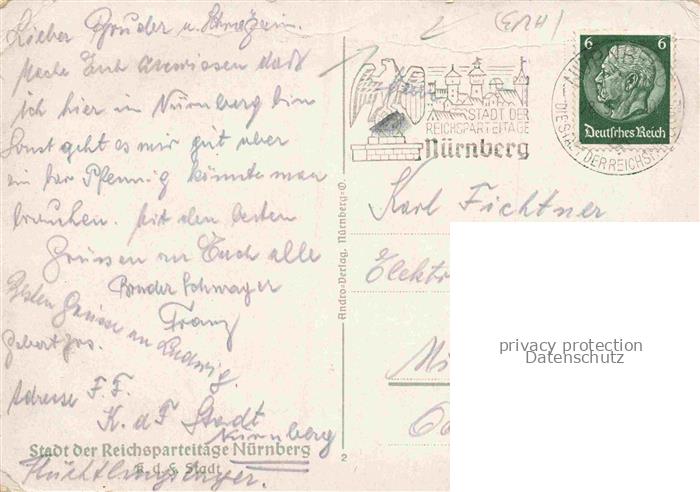 Lieber Bruder u. Schwägerin.
Mache Euch zu wissen das
ich hier in Nürnberg bin
Sonst geht es mir gut aber
ein par Pfennig könnte man
brauchen. Mit den besten
Grüssen an Euch alle
Bruder Schwager
Franz
Besten Grüsse an Ludwig.
Adresse F. F.
K. d F Stadt
Nürnberg
Stadt der Reichsparteitage Nürnberg
K. d. F. Stadt
Flüchtlingslager.
2
Andro-Verlag, Nürnberg-O.
STADT DER
REICHSPARTEITAGE
Nürnberg
6 6
Deutsches Reich
DIE STADT DER REICHSPA
Karl Fichtner
Elektr
privacy protection
Datenschutz